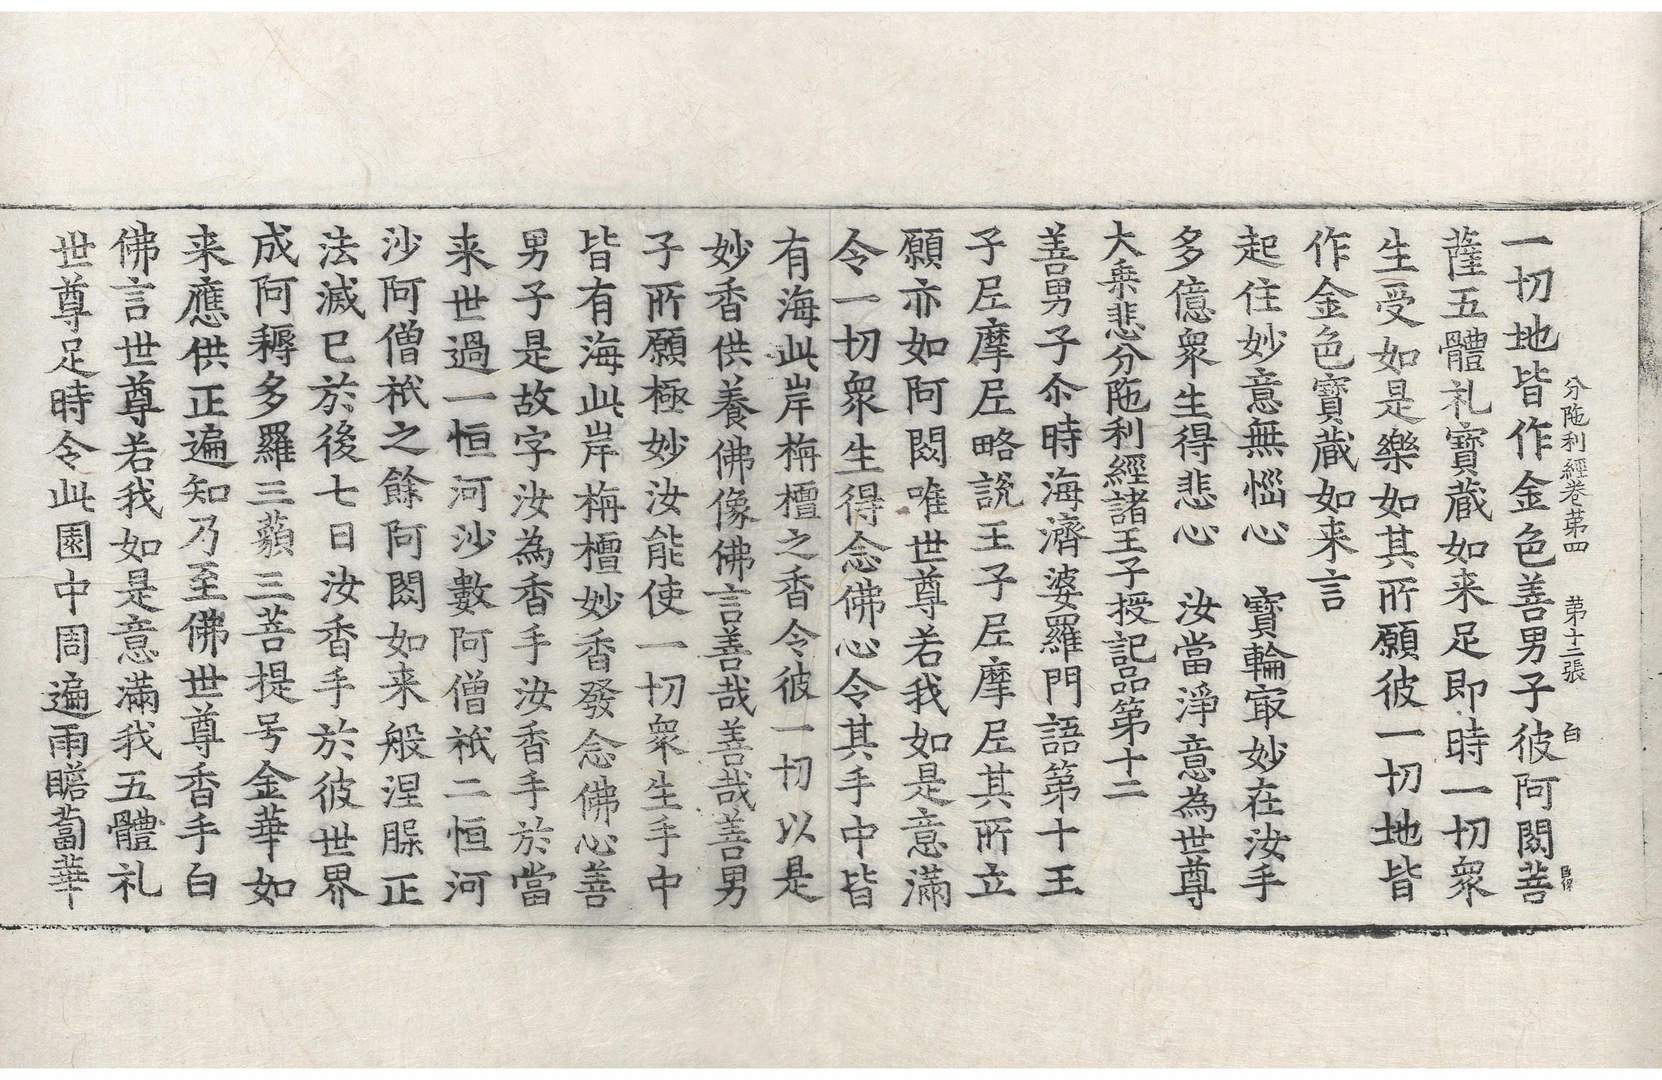 分陁利經卷第四 第十二張 白
一切地皆作金色善男子彼阿閦菩
薩五體礼寶蔵如来足即時一切衆
生受如是樂如其所願彼一切地皆
作金色寶蔵如来言
起住妙意無惱心 寶輪㝡妙在汝手
多億衆生得悲心 汝當淨意為世尊
大乘悲分陁利經諸王子授記品第十二
善男子尒時海濟婆羅門語第十王
子𡰱摩𡰱略說王子𡰱摩𡰱其所立
願亦如阿閦唯世尊若我如是意滿
令一切衆生得念佛心令其手中皆
有海此岸栴檀之香令彼一切以是
妙香供養佛像佛言善哉善哉善男
子所願極妙汝能使一切衆生手中
皆有海此岸栴檀妙香發念佛心善
男子是故字汝為香手汝香手於當
来世過一恒河沙數阿僧祇二恒河
沙阿僧祇之餘阿閦如来般涅槃正
法滅已於後七日汝香手於彼世界
成阿耨多羅三藐三菩提号金華如
来應供正遍知乃至佛世尊香手白
佛言世尊若我如是意滿我五體礼
世尊足時令此園中周遍雨瞻蔔華